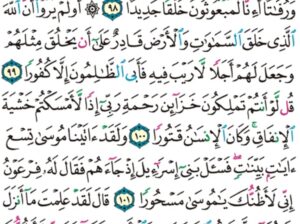 وَرُفَٰتًا أَءِنَّا لَمَبْعُوثُونَ خَلْقًا جَدِيدًا ٩٨ ۞ أَوَلَمْ يَرَوْا۟ أَنَّ ٱللَّهَ
ٱلَّذِى خَلَقَ ٱلسَّمَٰوَٰتِ وَٱلْأَرْضَ قَادِرٌ عَلَىٰٓ أَن يَخْلُقَ مِثْلَهُمْ
وَجَعَلَ لَهُمْ أَجَلًا لَّا رَيْبَ فِيهِ فَأَبَى ٱلظَّٰلِمُونَ إِلَّا كُفُورًا ٩٩
قُل لَّوْ أَنتُمْ تَمْلِكُونَ خَزَآئِنَ رَحْمَةِ رَبِّىٓ إِذًا لَّأَمْسَكْتُمْ خَشْيَةَ
ٱلْإِنفَاقِ ۚ وَكَانَ ٱلْإِنسَٰنُ قَتُورًا ١٠٠ وَلَقَدْ ءَاتَيْنَا مُوسَىٰ تِسْعَ
ءَايَٰتٍۭ بَيِّنَٰتٍ ۖ فَسْـَٔلْ بَنِىٓ إِسْرَٰٓءِيلَ إِذْ جَآءَهُمْ فَقَالَ لَهُۥ فِرْعَوْنُ
إِنِّى لَأَظُنُّكَ يَٰمُوسَىٰ مَسْحُورًا ١٠١ قَالَ لَقَدْ عَلِمْتَ مَآ أَنزَلَ